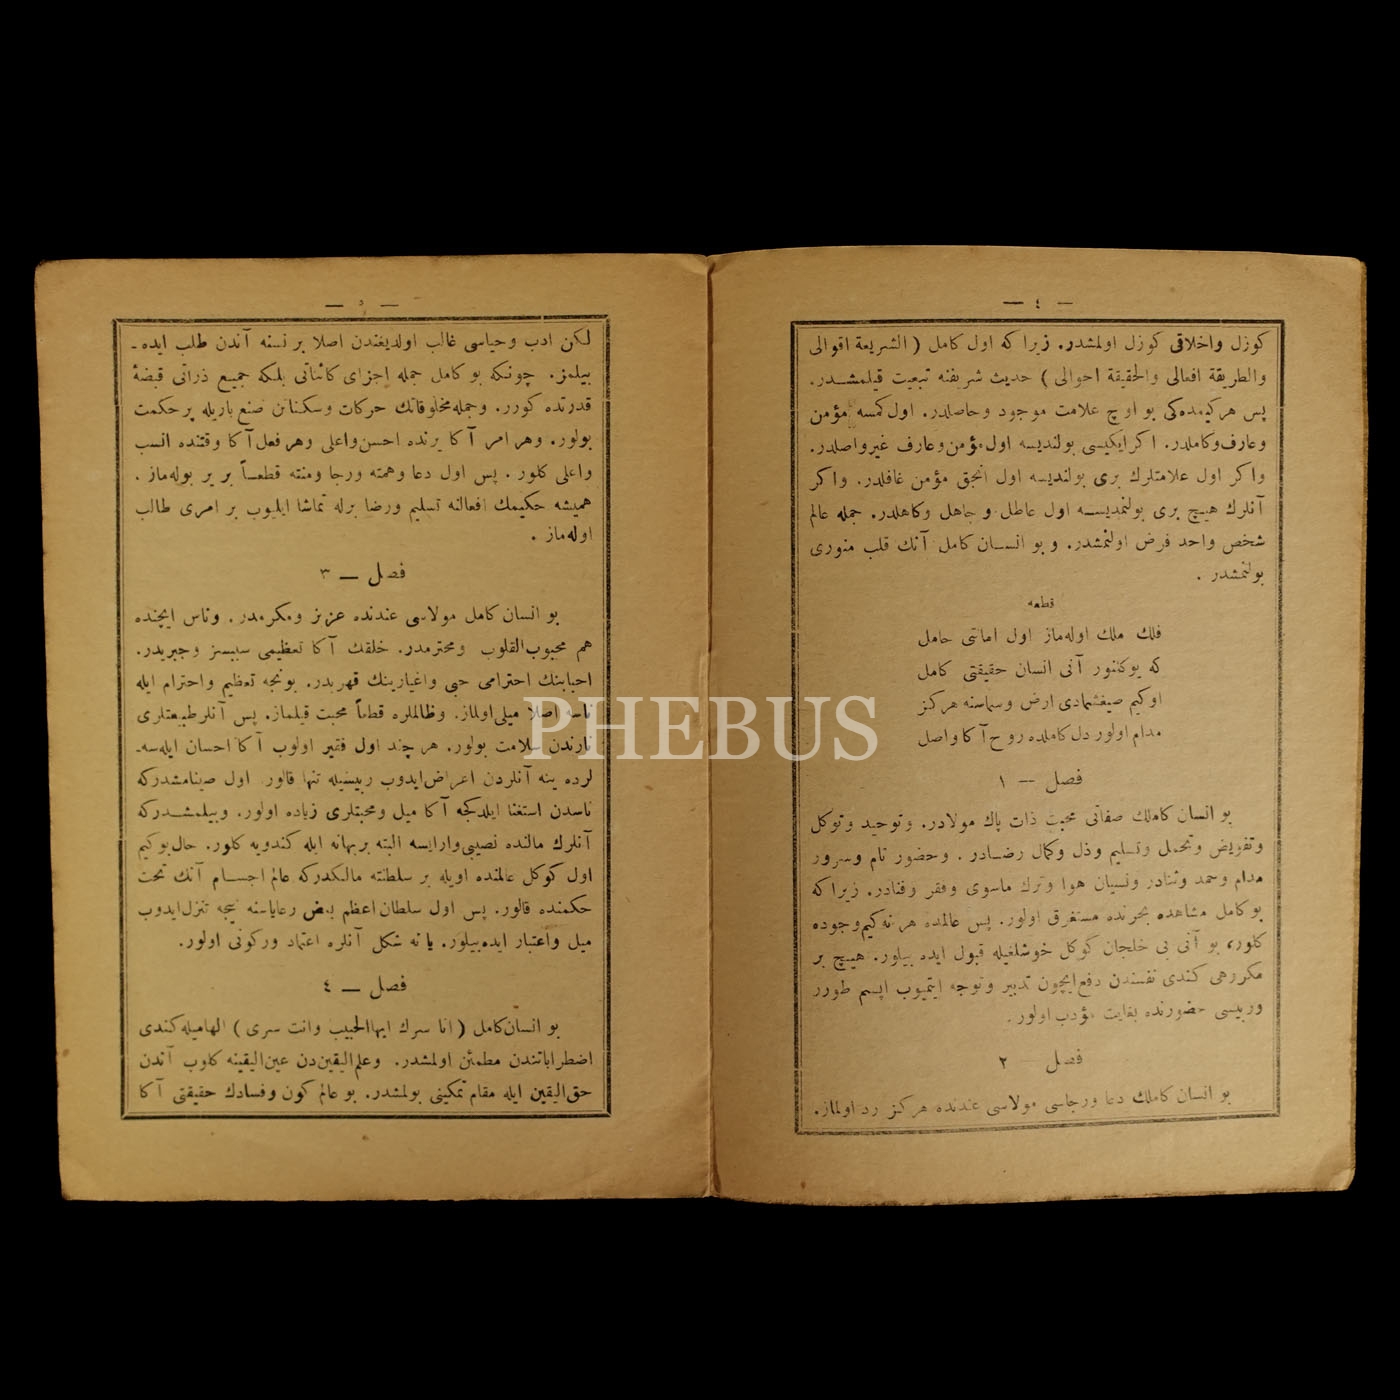 — ٤ —
كوزل واخلاقى كوزل اولمشدر. زيرا كه اول كامل ( الشريعة اقوالى
والطريقة افعالى والحقيقة احوالى ) حديث شريفنه تبعيت قيلمشدر.
پس هر كيمده كى بو اوچ علامت موجود وحاصلدر. اول كمسه مؤمن
وعارف وكاملدر. اكر ايكيسى بولنديسه اول مؤمن وعارف غير واصلدر.
واكر اول علامتلرك برى بولنديسه اول انجق مؤمن غافلدر. واكر
آنلرك هيچ برى بولنمديسه اول عاطل و جاهل وكاهلدر. جمله عالم
شخص واحد فرض اولنمشدر. و بو انسان كامل آنك قلب منورى
بولنمشدر .
قطعه
فلك ملك اوله ماز اول امانتى حامل
كه يوكلنور آنى انسان حقيقتى كامل
اوكيم صيغشمادى ارض وسماسنه هركز
مدام اولور دل كاملده روح آكا واصل
فصل — ١
بو انسان كاملك صفاتى محبت ذات پاك مولادر. وتوحيد وتوكل
وتفويض وتحمل وتسليم وذل وكمال رضادر . وحضور تام وسرور
مدام وحمد وثنادر ونسيان هوا وترك ماسوى وفقر وفنادر. زيرا كه
بو كامل مشاهده بحرنده مستغرق اولور. پس عالمده هر نه كيم وجوده
كلور، بو آنى بى خلجان كوكل خوشلغيله قبول ايده بيلور. هيچ بر
مكررهى كندى نفسندن دفع ايچون تدبير وتوجه ايتميوب ابسم طورر
وربيسى حضورنده بغايت مؤدب اولور .
فصل — ٢
بو انسان كاملك دعا ورجاسى مولاسى عندنده هركز رد اولماز.
— ٥ —
لكن ادب وحياسى غالب اولديغندن اصلا بر نسنه آندن طلب ايده‌-
بيلمز. چونكه بو كامل جمله اجزاى كائناتى بلكه جميع ذراتى قبضهٔ
قدرتده كورر. وجمله مخلوقاتك حركات وسكناتن صنع باريله پر حكمت
بولور. وهر امر آكا يرنده احسن واعلى وهر فعل آكا وقتنده انسب
واعلى كلور . پس اول دعا وهمته ورجا ومنته قطعاً بر ير بوله ماز .
هميشه حكيمك افعالنه تسليم ورضا برله تماشا ايليوب بر امرى طالب
اوله ماز .
فصل — ٣
بو انسان كامل مولاسى عندنده عزيز ومكرمدر. وناس ايچنده
هم محبوب القلوب ومحترمدر. خلقك آكا تعظيمى سببسز وجبريدر.
احبابنك احترامى حبى واغيارينك قهريدر. بونجه تعظيم واحترام ايله
ناسه اصلا ميلى اولماز. وظالملره قطعاً محبت قيلماز. پس آنلر طبيعتلرى
نارندن سلامت بولور. هر چند اول فقير اولوب آكا احسان ايله سه-
لرده ينه آنلردن اعراض ايدوب ربيسيله تنها قالور. اول صينامشدركه
ناسدن استغنا ايلدكجه آكا ميل ومحبتلرى زياده اولور. وبيلمشدركه
آنلرك مالنده نصيبى وارايسه البته بر بهانه ايله كندويه كلور. حال بوكيم
اول كوكل عالمنده اويله بر سلطنته مالكدركه عالم اجسام آنك تحت
حكمنده قالور. پس اول سلطان اعظم بعض رعاياسنه نيجه تنزل ايدوب
ميل واعتبار ايده بيلور. يا نه شكل آنلره اعتماد وركونى اولور.
فصل — ٤
بو انسان كامل ( انا سرك ايها الحبيب وانت سرى ) الهاميله كندى
اضطراباتندن مطمئن اولمشدر. وعلم اليقين دن عين اليقينه كلوب آندن
حق اليقين ايله مقام تمكينى بولمشدر. بو عالم كون وفسادك حقيقتى آكا
PHEBUS